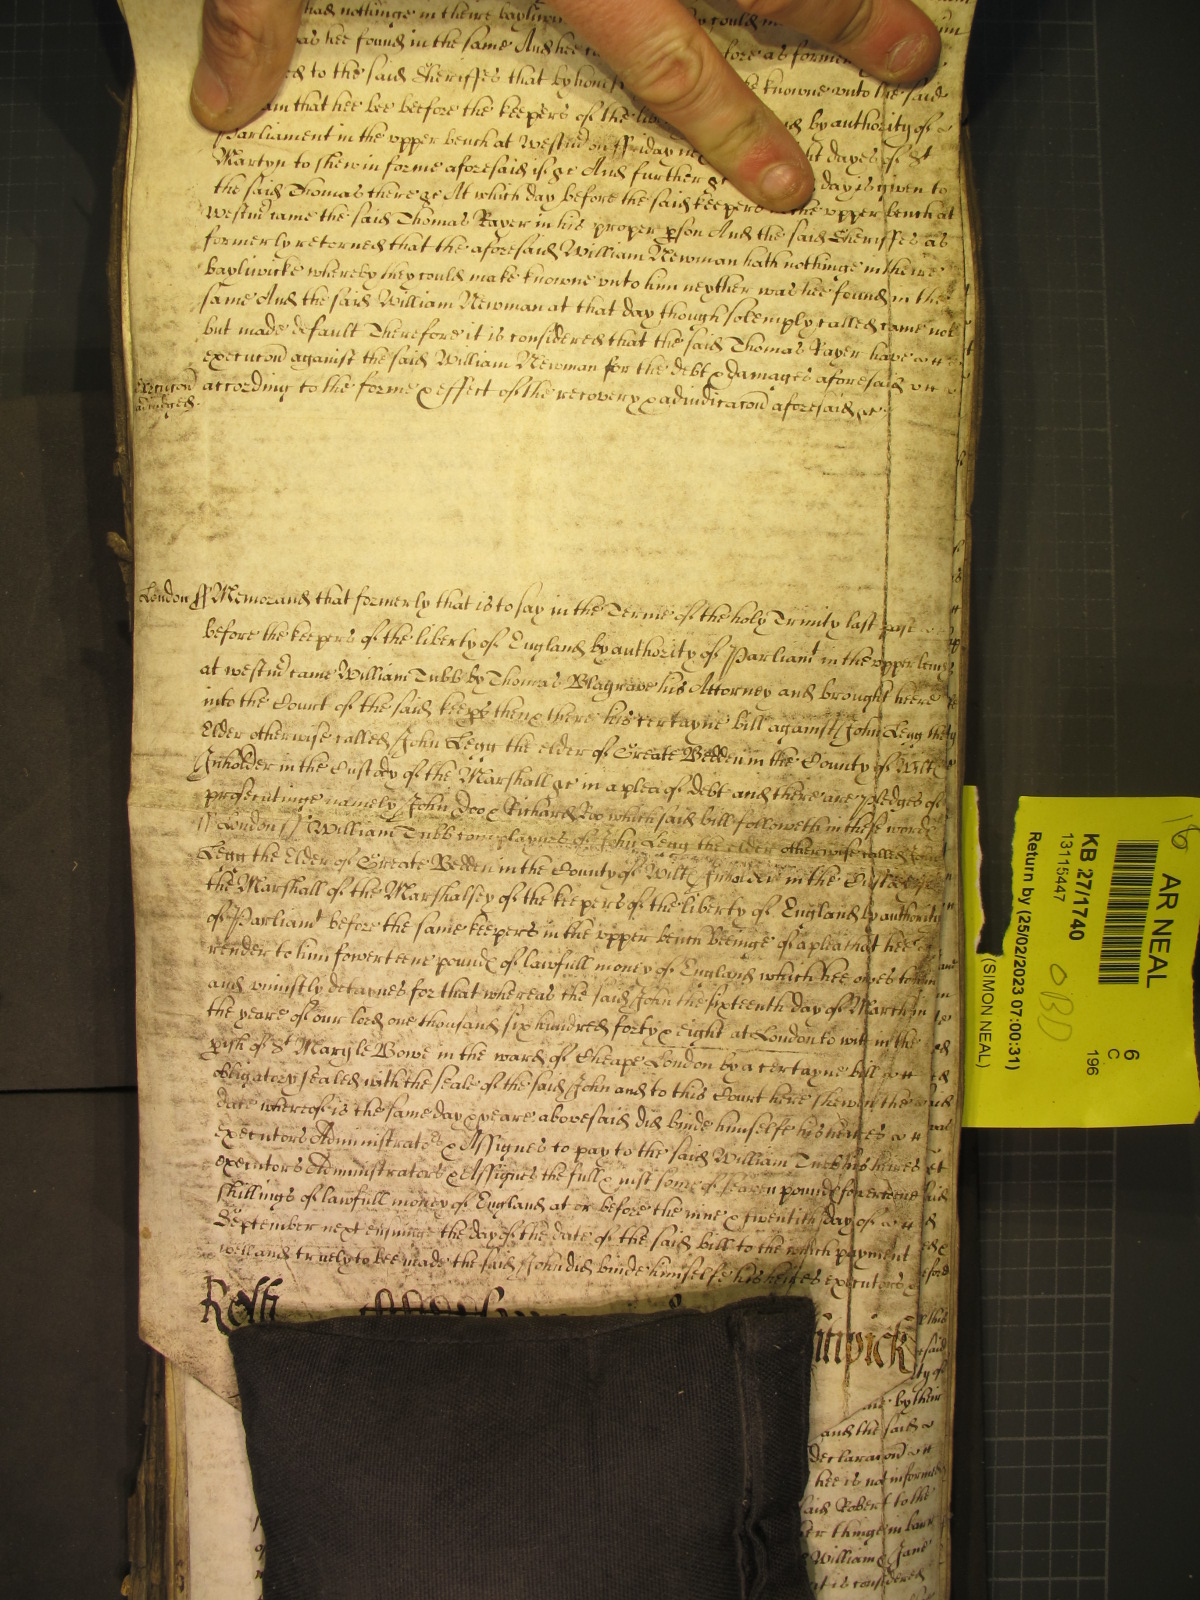 had nothinge in theire bayliw could
as hee found in the same And hee fore as former
ed to the said Sheriffes that by honest knowne unto the said
am that hee bee beefore the keepers of the lib by authority of
Parliament in the upper bench at Westmr on ffriday nex ht dayes of St
Martyn to shew in forme aforesaid if &c And further &c day is given to
the said Thomas there &c At which day before the said keepers the upper bench at
Westmr came the said Thomas Rayer in his proper pson And the said Sheriffes as
formerly returned that the aforesaid William Newman hath nothinge in theire
bayliwicke whereby they could make knowne unto him neyther was hee found in the
same And the said William Newman at that day though solemply called came not
but made default Therefore it is considered that the said Thomas Rayer have
execucon against the said William Newman for the debt & damages aforesaid
Execucon adiudged according to the forme & effect of the recovery & adiudicacon aforesaid &c
London ss Memorand that formerly that is to say in the Terme of the holy Trinity last past
before the keepers of the liberty of England by authority of Parliamt in the upper bench
at westmr came William Tubb by Thomas Blagrave his Attorney and brought heere
into the Court of the said keeps then & there his certayne bill against John Legg the
Elder otherwise called John Legg the elder of Create Bedden in the County of Wilts
Inholder in the Custody of the Marshall &c in a plea of debt and there are pledges of
prosecutinge namely John Doo & Richard Roo which said bill followeth in these words
ss London ss William Tubb complaynes of John Legg the elder otherwise called John
Legg the Elder of Create Bedden in the County of Wilts Inholder in the Custody of
the Marshall of the Marshalsey of the keepers of the liberty of England by authority
of Parliamt before the same keepers in the upper bench beeinge of a plea that hee
render to him fowerteene pounds of lawfull money of England which hee owes to him
and uniustly detaynes for that whereas the said John the sixteenth day of March in
the yeare of our lord one thousand six hundred forty & eight at London to wit in the
pish of St Mary le Bowe in the ward of Cheape London by a certayne bill
obligatory sealed with the seale of the said John and to this Court here shewen the
date whereof is the same day & yeare abovesaid did binde himselfe his heires
executors Administrators & Assignes to pay to the said William Tubb his heires
executors Administrators & Assignes the full & iust some of seaven pounds fowerteene
shillings of lawfull money of England at or before the nine & twentith day of
September next ensuinge the day of the date of the said bill to the which payment
well and truely to bee made the said John did binde himselfe his heires executors
Rolls
and by their
and the said
declaracon
hee is not informed
said Robert to the
ther thinge in barr
William & Jane
it is considered
AR NEAL
KB 27/1740
13115447
Return by (25/02/2023 07:00:31)
(SIMON NEAL)
6
C
196
16